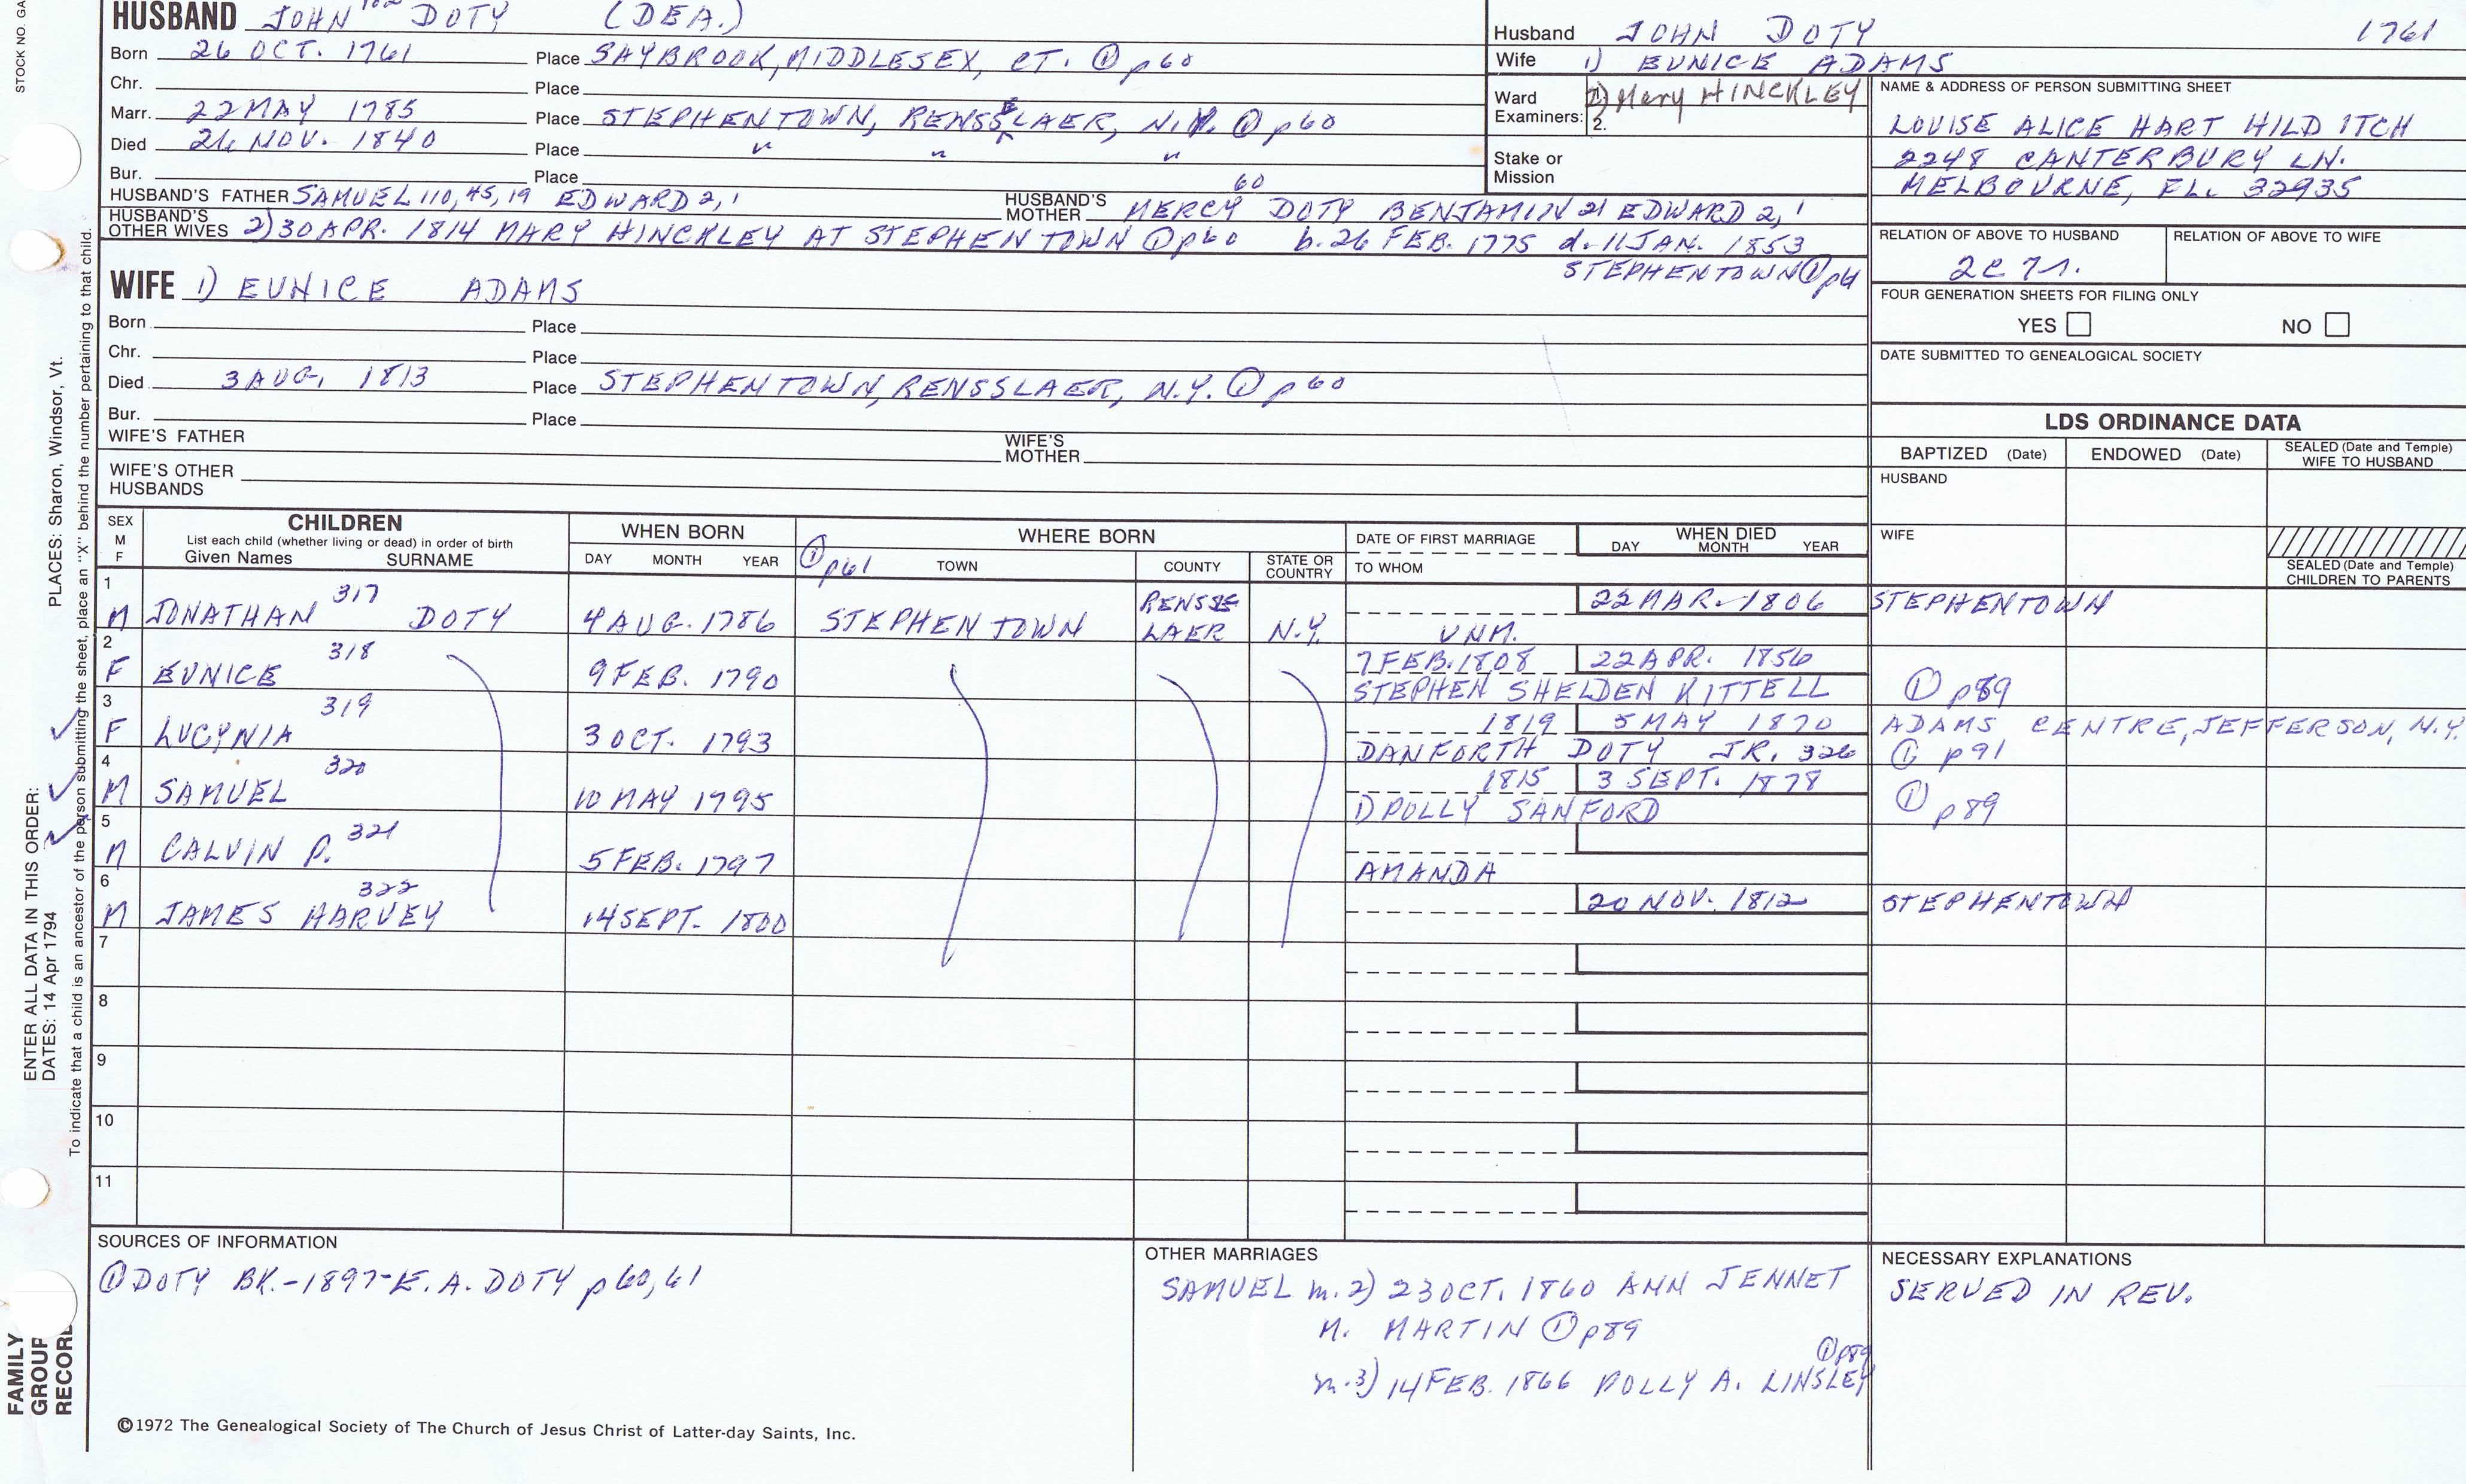 HUSBAND JOHN DOTY (DEA.)
Born 26 OCT. 1761 Place SAYBROOK, MIDDLESEX, CT. ① p60
Chr. Place
Marr. 22 MAY 1785 Place STEPHENTOWN, RENSSELAER, N.Y. ① p60
Died 26 NOV. 1840 Place " " "
Bur. Place
HUSBAND'S FATHER SAMUEL 110, 45, 19 EDWARD 2, 1 HUSBAND'S MOTHER MERCY DOTY 60 BENJAMIN 21 EDWARD 2, 1
HUSBAND'S OTHER WIVES 2) 30 APR. 1814 MARY HINCKLEY AT STEPHENTOWN ① p60 b. 26 FEB. 1775 d. 11 JAN. 1853
STEPHENTOWN ① p61
WIFE 1) EUNICE ADAMS
Born Place
Chr. Place
Died 3 AUG. 1813 Place STEPHENTOWN, RENSSLAER, N.Y. ① p60
Bur. Place
WIFE'S FATHER WIFE'S MOTHER
WIFE'S OTHER HUSBANDS
Husband JOHN DOTY 1761
Wife 1) EUNICE ADAMS
Ward Examiners: 2) Mary HINCKLEY
2.
Stake or Mission
NAME & ADDRESS OF PERSON SUBMITTING SHEET
LOUISE ALICE HART HILD ITCH
2248 CANTERBURY LN.
MELBOURNE, FL. 32935
RELATION OF ABOVE TO HUSBAND RELATION OF ABOVE TO WIFE
2C 7r.
FOUR GENERATION SHEETS FOR FILING ONLY
YES NO
DATE SUBMITTED TO GENEALOGICAL SOCIETY
LDS ORDINANCE DATA
BAPTIZED (Date) ENDOWED (Date) SEALED (Date and Temple) WIFE TO HUSBAND
HUSBAND
WIFE
SEALED (Date and Temple) CHILDREN TO PARENTS
SEX M F CHILDREN WHEN BORN WHERE BORN DATE OF FIRST MARRIAGE WHEN DIED
List each child (whether living or dead) in order of birth
Given Names SURNAME DAY MONTH YEAR ① p61 TOWN COUNTY STATE OR COUNTRY TO WHOM DAY MONTH YEAR
1 M JONATHAN 317 DOTY 4 AUG. 1786 STEPHENTOWN RENSSE LAER N.Y. 22 MAR. 1806 STEPHENTOWN
UNM.
2 F EUNICE 318 9 FEB. 1790 7 FEB. 1808 22 APR. 1856
STEPHEN SHELDEN KITTELL ① p89
3 F LUCYNIA 319 3 OCT. 1793 1819 5 MAY 1870 ADAMS CENTRE, JEFFERSON, N.Y.
DANFORTH DOTY JR. 326 ① p91
4 M SAMUEL 320 10 MAY 1795 1815 3 SEPT. 1878 ① p89
1) POLLY SANFORD
5 M CALVIN P. 321 5 FEB. 1797
AMANDA
6 M JAMES HARVEY 322 14 SEPT. 1800 20 NOV. 1812 STEPHENTOWN
7
8
9
10
11
SOURCES OF INFORMATION
① DOTY BK.-1897-E.A. DOTY p60, 61
OTHER MARRIAGES
SAMUEL m. 2) 23 OCT. 1860 ANN JENNET
M. MARTIN ① p89
m. 3) 14 FEB. 1866 POLLY A. LINSLEY ① p89
NECESSARY EXPLANATIONS
SERVED IN REV.
©1972 The Genealogical Society of The Church of Jesus Christ of Latter-day Saints, Inc.
STOCK NO. GA
PLACES: Sharon, Windsor, Vt.
ENTER ALL DATA IN THIS ORDER:
DATES: 14 Apr 1794
To indicate that a child is an ancestor of the person submitting the sheet, place an "X" behind the number pertaining to that child.
FAMILY
GROUP
RECORD